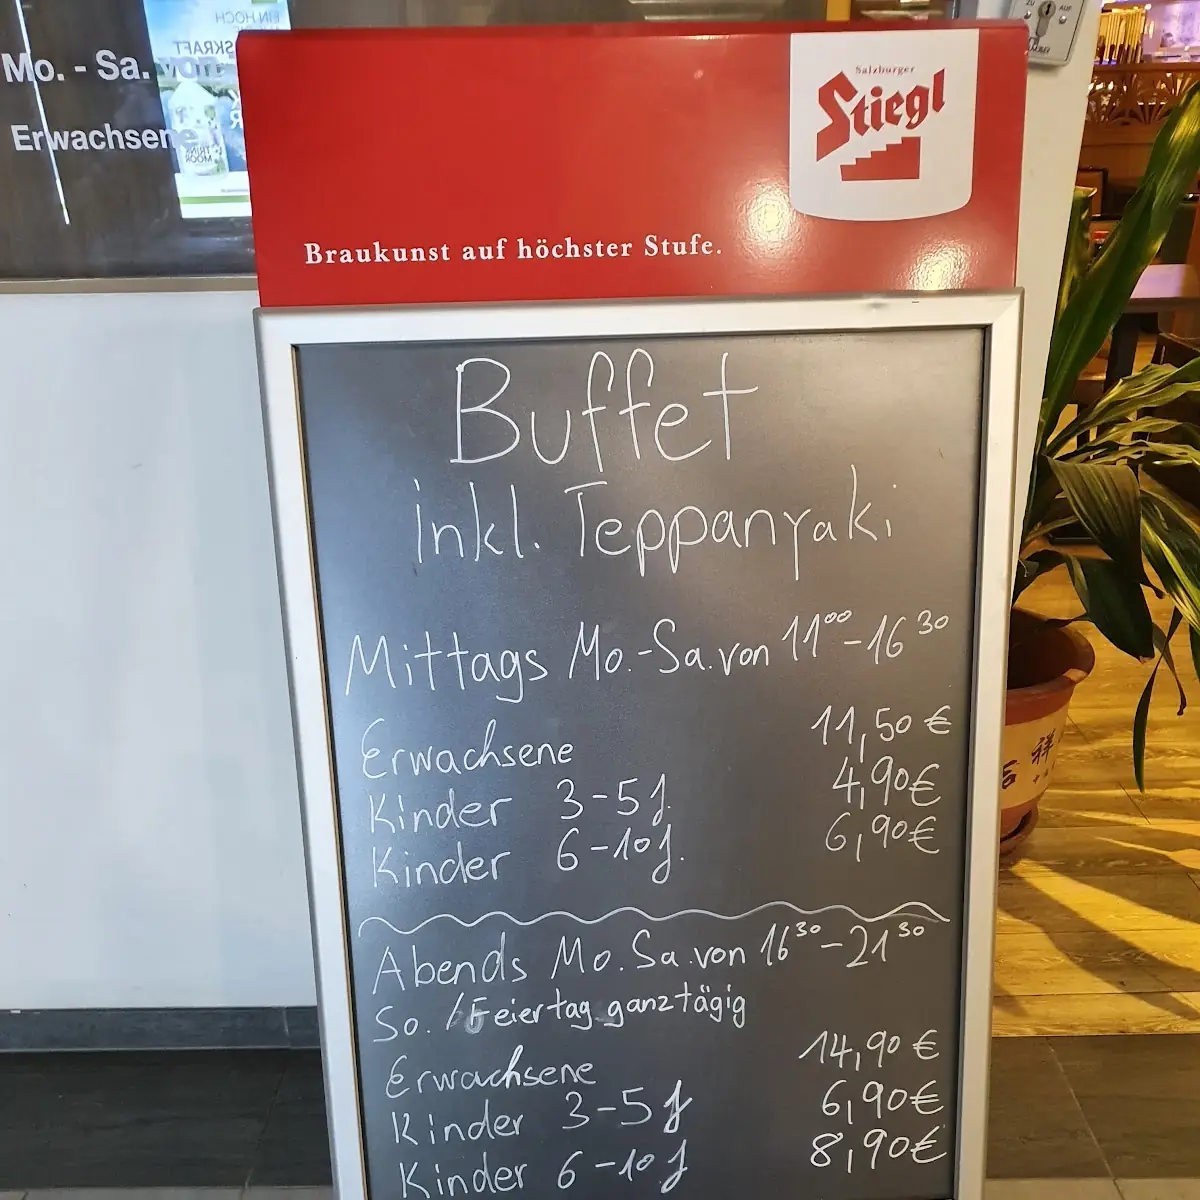 Mo. - Sa.
Erwachsene
EIN HOCH
SKRAFT
TRINK
MOOR
Salzburger
Stiegl
Braukunst auf höchster Stufe.
Buffet
inkl. Teppanyaki
Mittags Mo.-Sa. von 11⁰⁰-16³⁰
Erwachsene 11,50 €
Kinder 3-5 J. 4,90€
Kinder 6-10 J. 6,90€
Abends Mo. Sa. von 16³⁰-21³⁰
So. / Feiertag ganztägig
Erwachsene 14,90 €
Kinder 3-5 J 6,90€
Kinder 6-10 J 8,90€
祥